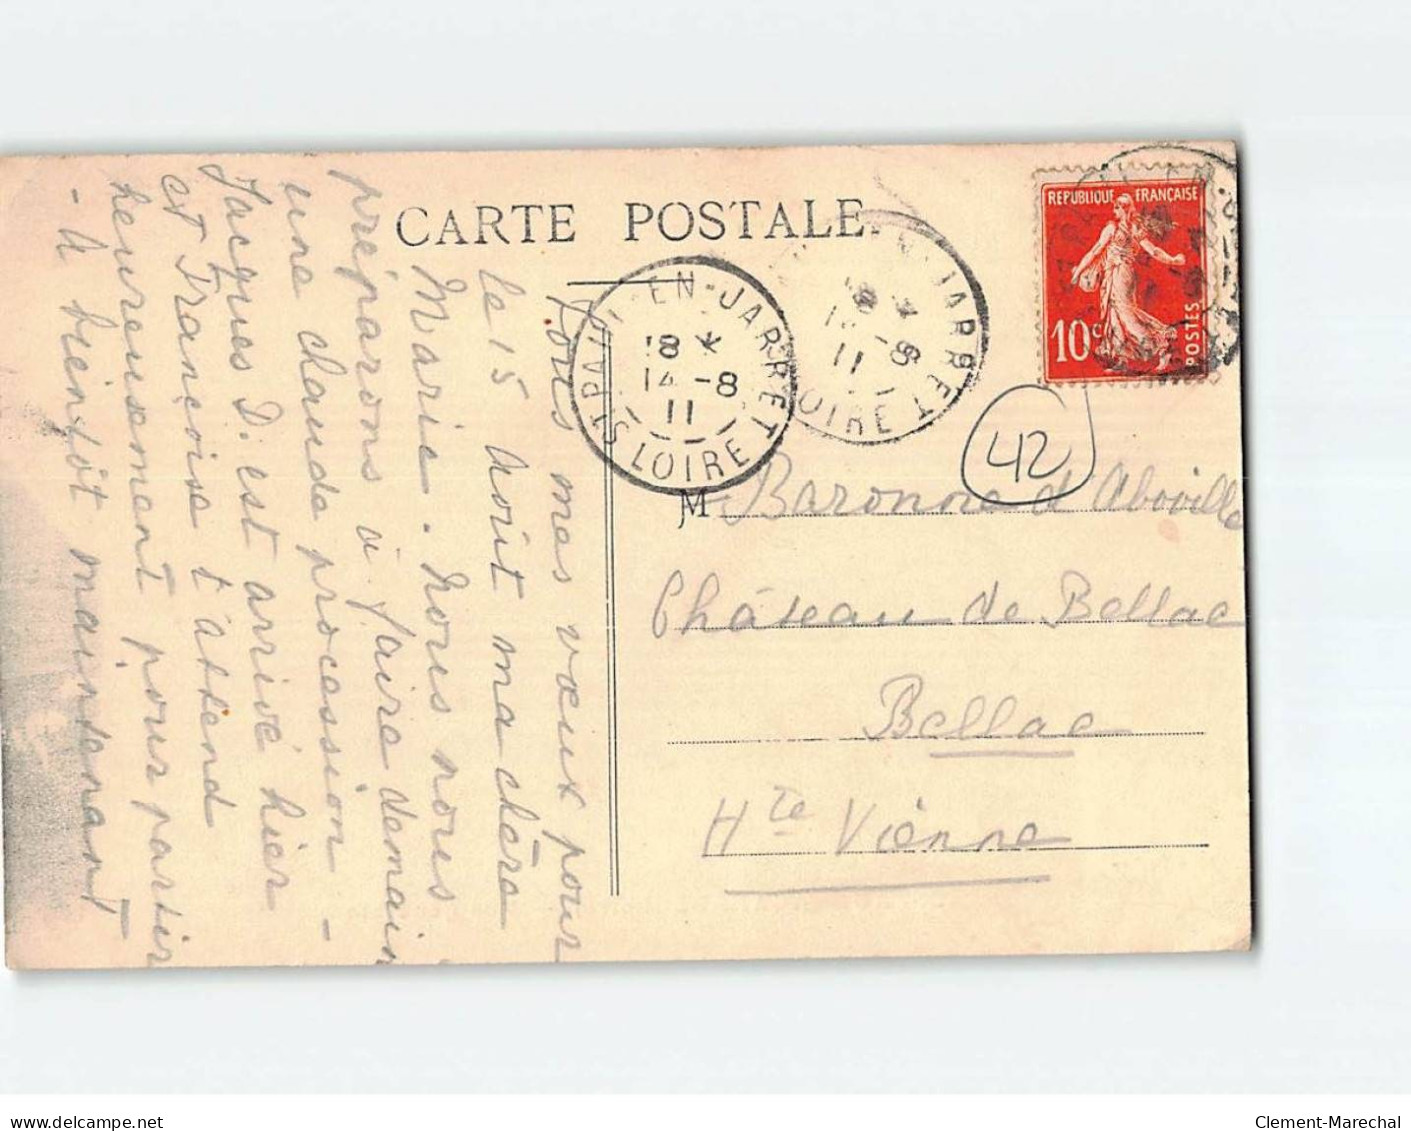 CARTE POSTALE
REPUBLIQUE FRANÇAISE
10c
POSTES
ST PAUL-EN-JARRET
18 *
14 -8
11
LOIRE
EN-JARRET
14 -8
11
LOIRE
42
Tous mes vœux pour
le 15 Août ma chère
Marie. Nous nous
préparons à faire demain
une chaude procession -
Jacques D. est arrivé hier
et Françoise t'attend
heureusement pour partir
- A bientôt maintenant
M Baronne d'Aboville
Château de Bellac
Bellac
Hte Vienne
delcampe.net
Clement-Marechal